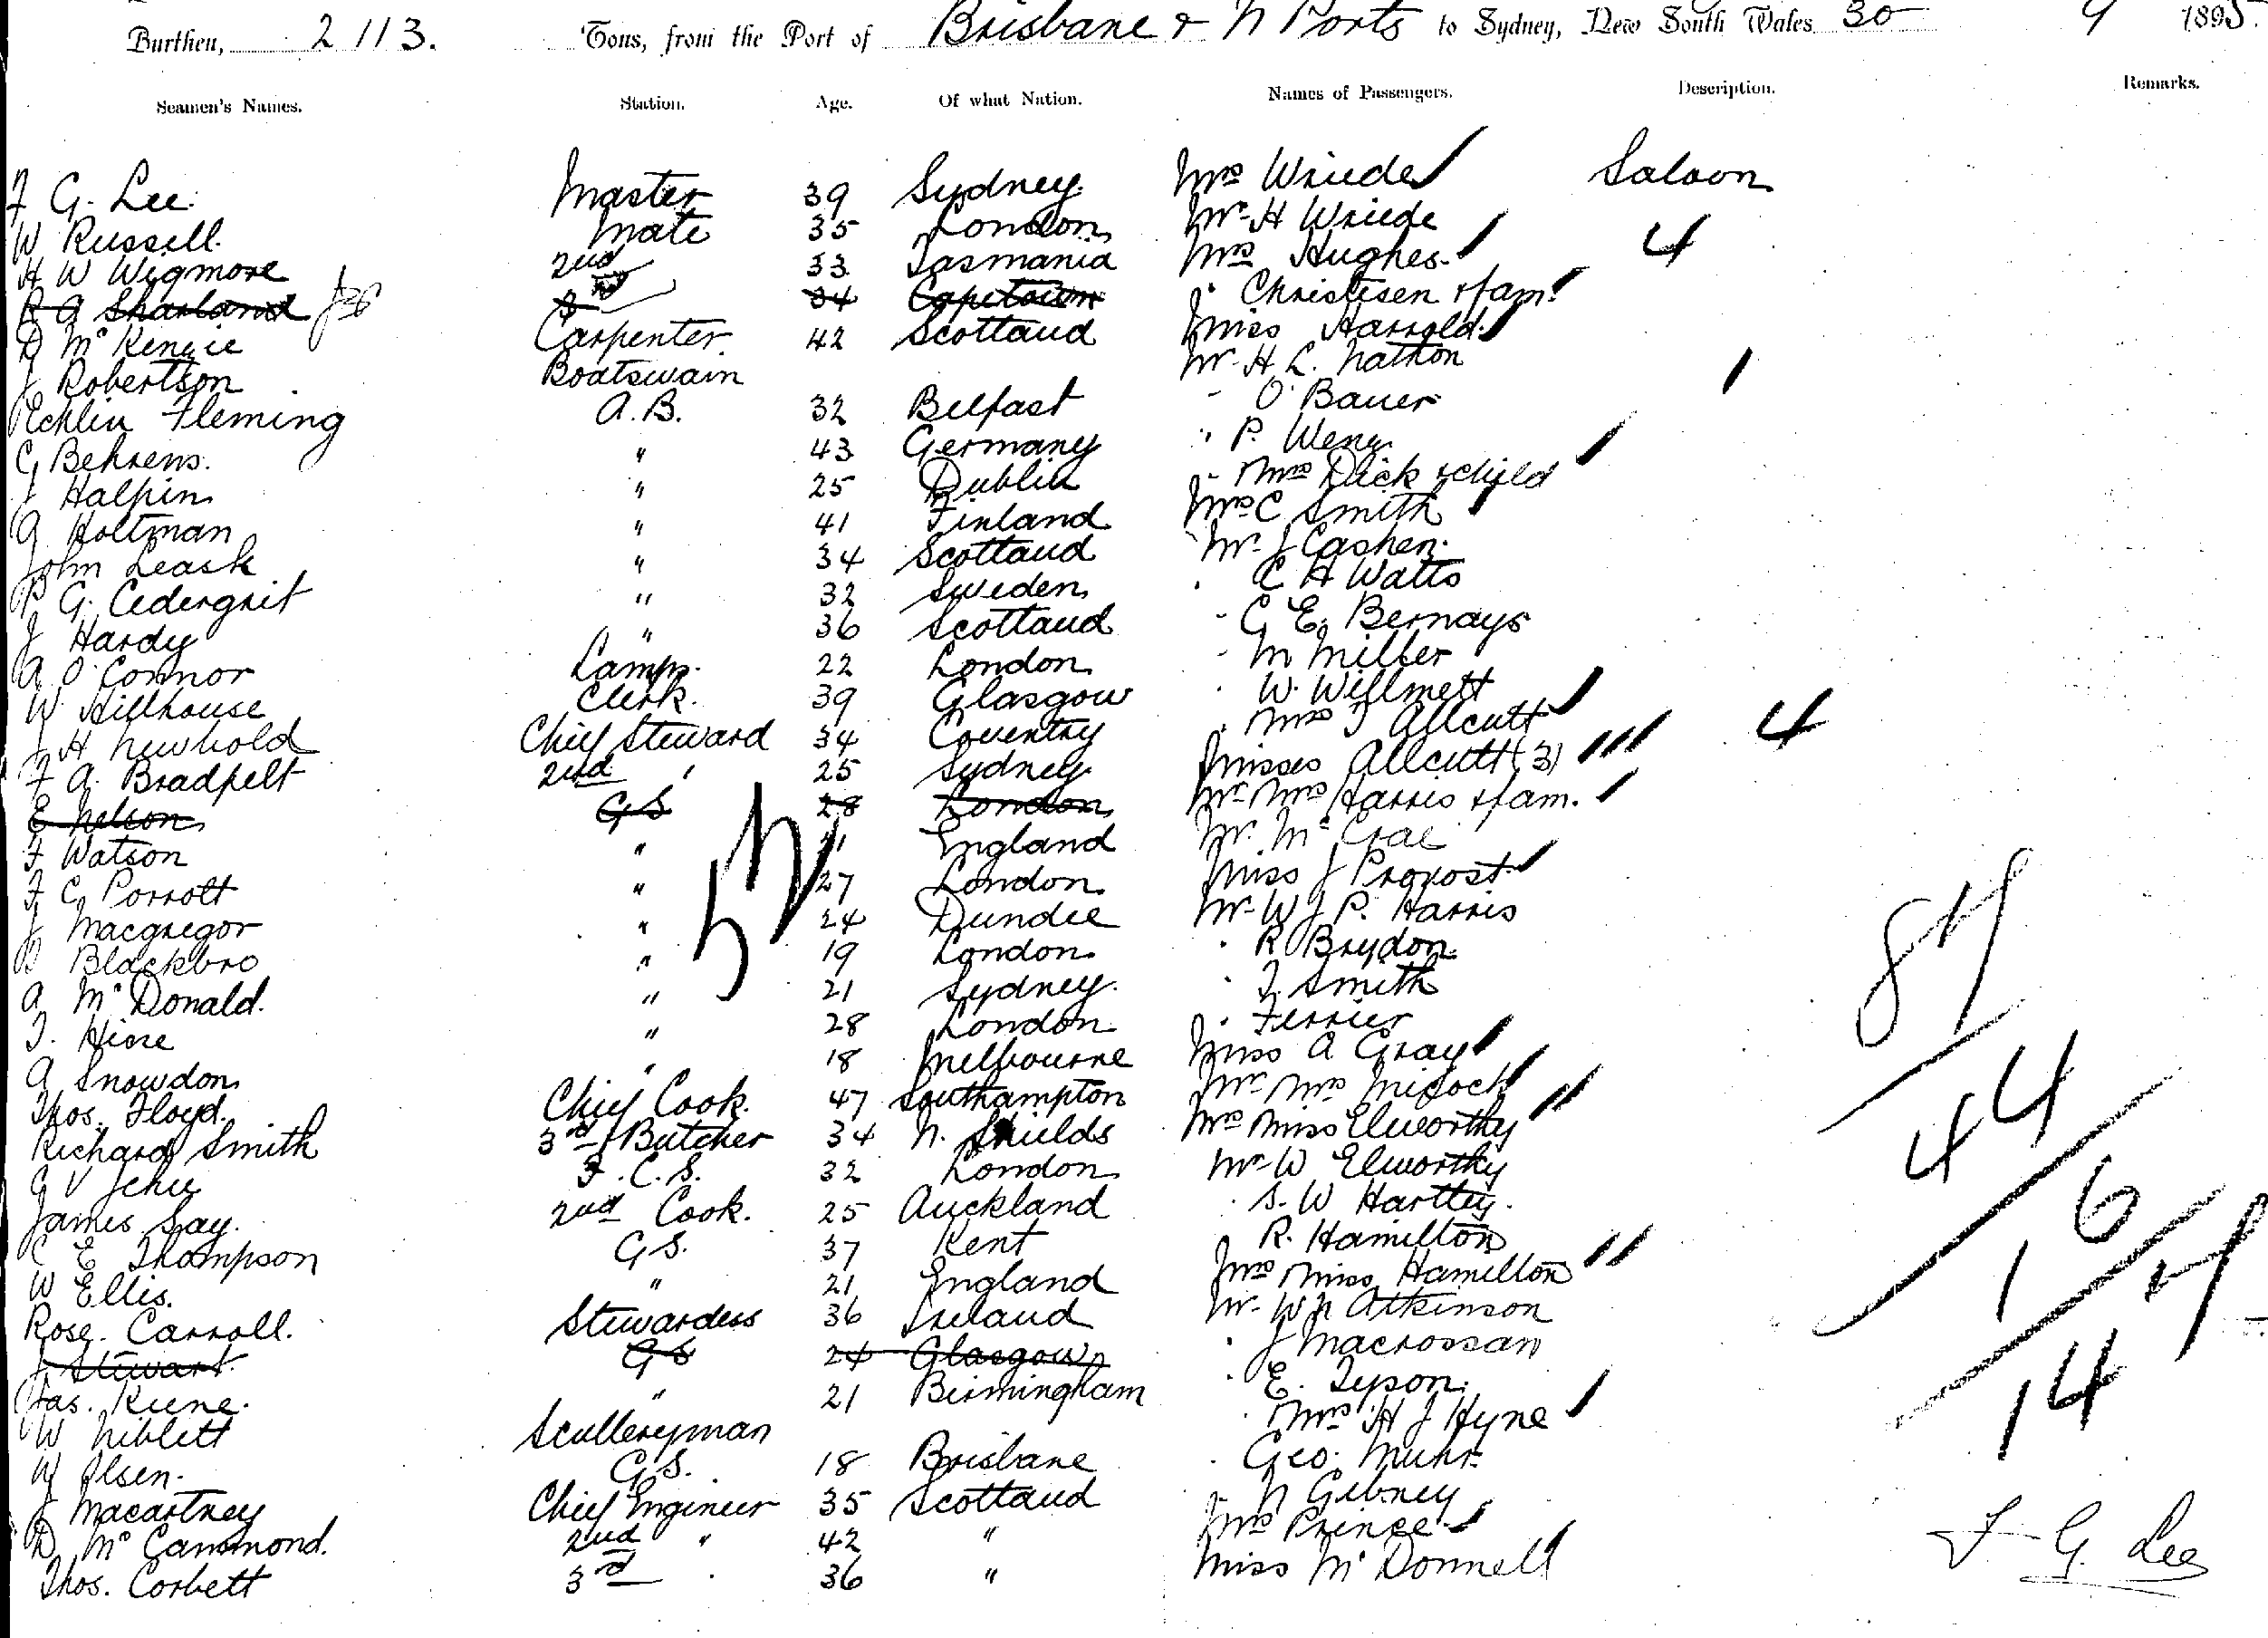 Burthen, 2113. Tons, from the Port of Brisbane & N Ports to Sydney, New South Wales 30 9 1895
Seamen's Names. Station. Age. Of what Nation. Names of Passengers. Description. Remarks.
F G. Lee. Master 39 Sydney. Mrs Wriede Saloon
W Russell. Mate 35 London Mr H Wriede
H W Wigmore 2nd 33 Tasmania Mrs Hughes. 4
R A Sharland 34 Capetown " Christisen & fam.
D McKenzie Carpenter 42 Scotland Miss Harrold.
J Robertson Boatswain Mr H L. Nathan
Echlin Fleming A.B. 32 Belfast - O Bauer
C Behrens. " 43 Germany " P. Weny
J Halpin " 25 Dublin - Mrs Dick & child
G Holtman " 41 Finland Mrs C Smith
John Leask " 34 Scotland Mr J Cashen.
P G. Cedergrit " 32 Sweden " C H Watts
J Hardy " 36 Scotland - G E. Bernays
A O'Connor Lamps. 22 London - M Miller
W Hillhouse Clerk. 39 Glasgow " W. Willmett
J H Newbold Chief Steward 34 Coventry " Mrs T Allcutt
F A. Bradpelt 2nd " 25 Sydney Misses Allcutt (3) 4
E Nelson GS 28 London Mr Mrs Harris & fam.
F Watson " 21 England Mr. McCrae
F C Porrott " 27 London Miss J Provost
J Macgregor " 24 Dundee Mr W J P. Harris
B Blackbro " 19 London " R Brydon
A McDonald. " 21 Sydney. " T. Smith
T. Hine " 28 London " Ferrier
A Snowdon " 18 Melbourne Miss A Gray
Thos. Floyd. Chief Cook. 47 Southampton Mr Mrs
Richard Smith 3rd & Butcher 34 N. Shields Mrs Miss Elworthy
G V Jehu F.C.S. 32 London Mr W Elworthy
James Say. 2nd Cook. 25 Auckland " S. W Hartley.
C E Thompson G S. 37 Kent R. Hamilton
W Ellis. " 21 England Mrs Miss Hamilton
Rose Carroll. Stewardess 36 Ireland Mr W N Atkinson
J Stewart. GS 24 Glasgow " J Macrossan
Chas. Keene. " 21 Birmingham " E. Tyson.
W Niblett Sculleryman " Mrs H J Hyne
W Olsen. G.S. 18 Brisbane " Geo. Muhr
J Macartney Chief Engineer 35 Scotland " N Gibney
D McCammond. 2nd " 42 " Mrs Prince
Thos. Corbett 3rd " 36 " Miss McDonnell
87
44
6
1
14
F G. Lee